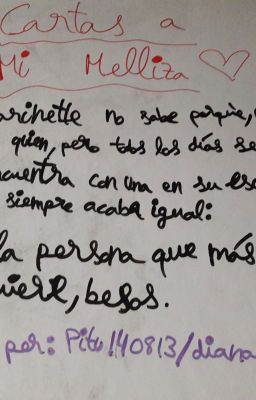 Cartas a
Mi Melliza
no sabe porque,
quien, pero todos los días se
cuentra con una en su
siempre acaba igual:
la persona que más
quiere, besos.
por: